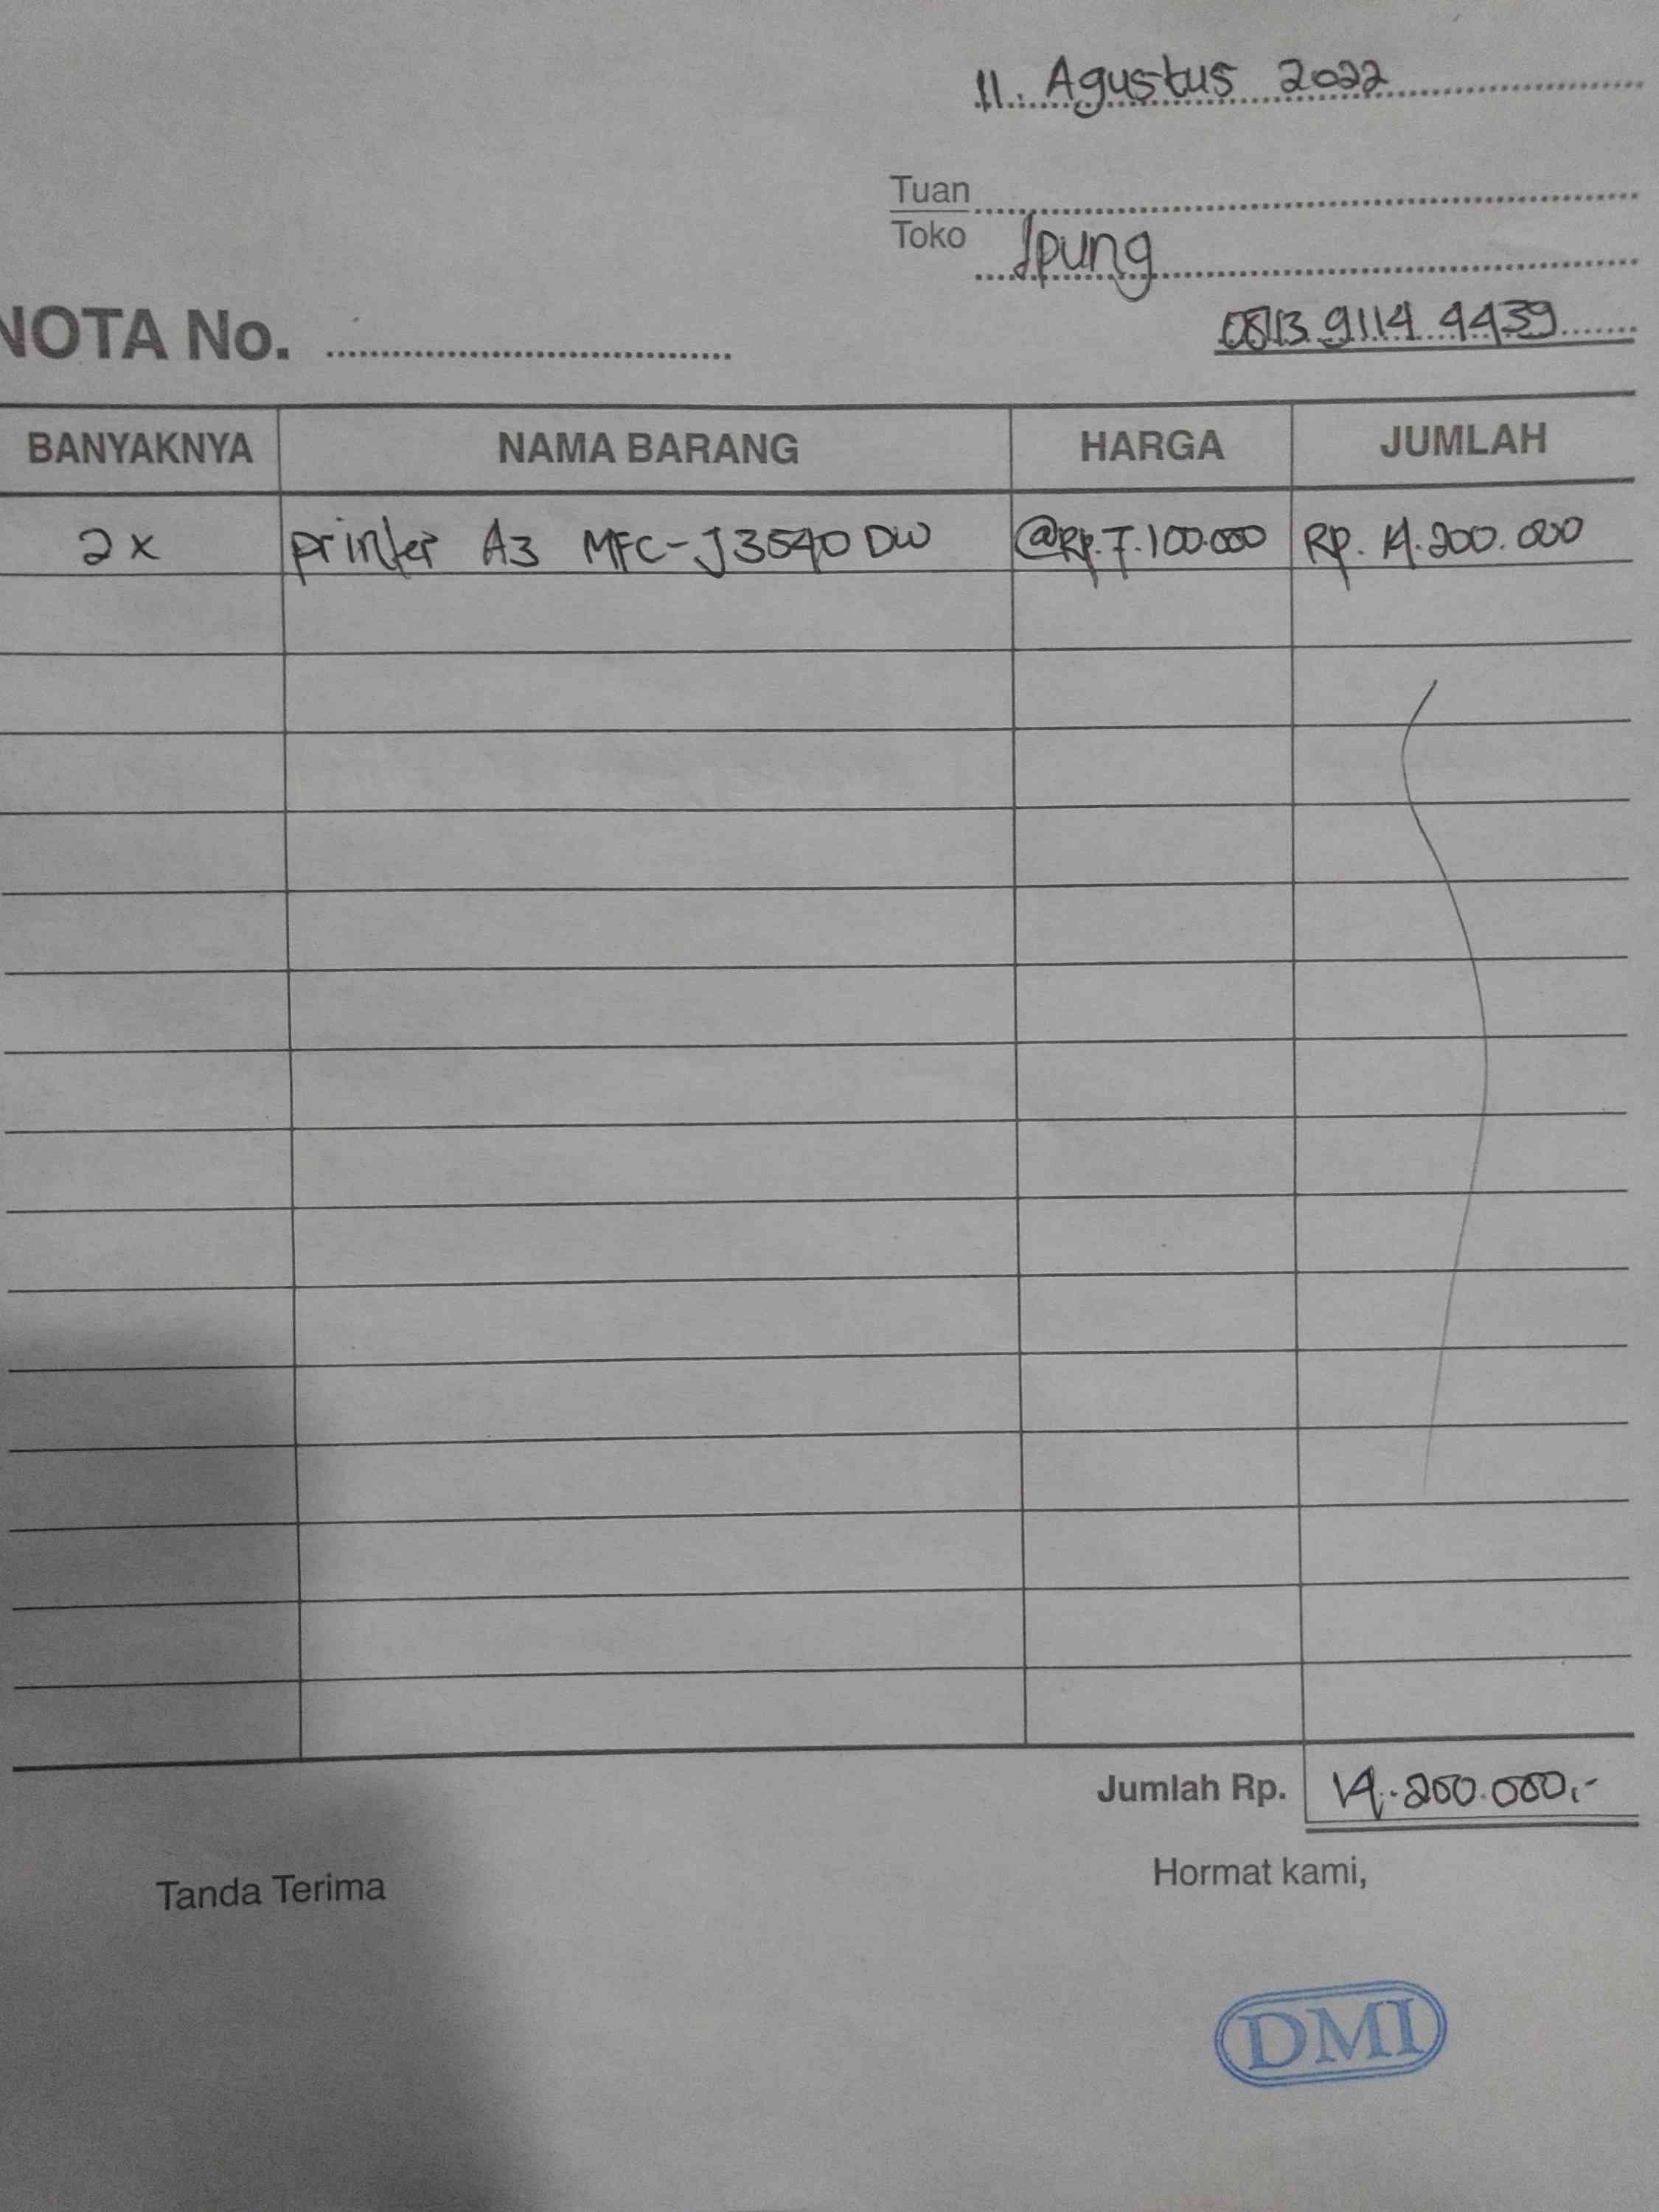 11. Agustus 2022
Tuan
Toko Ipung
NOTA No.
0813 9114 4439
BANYAKNYA NAMA BARANG HARGA JUMLAH
2x printer A3 MFC-J3540 DW @Rp. 7.100.000 Rp. 14.200.000
Jumlah Rp. 14.200.000,-
Tanda Terima Hormat kami,
DMI